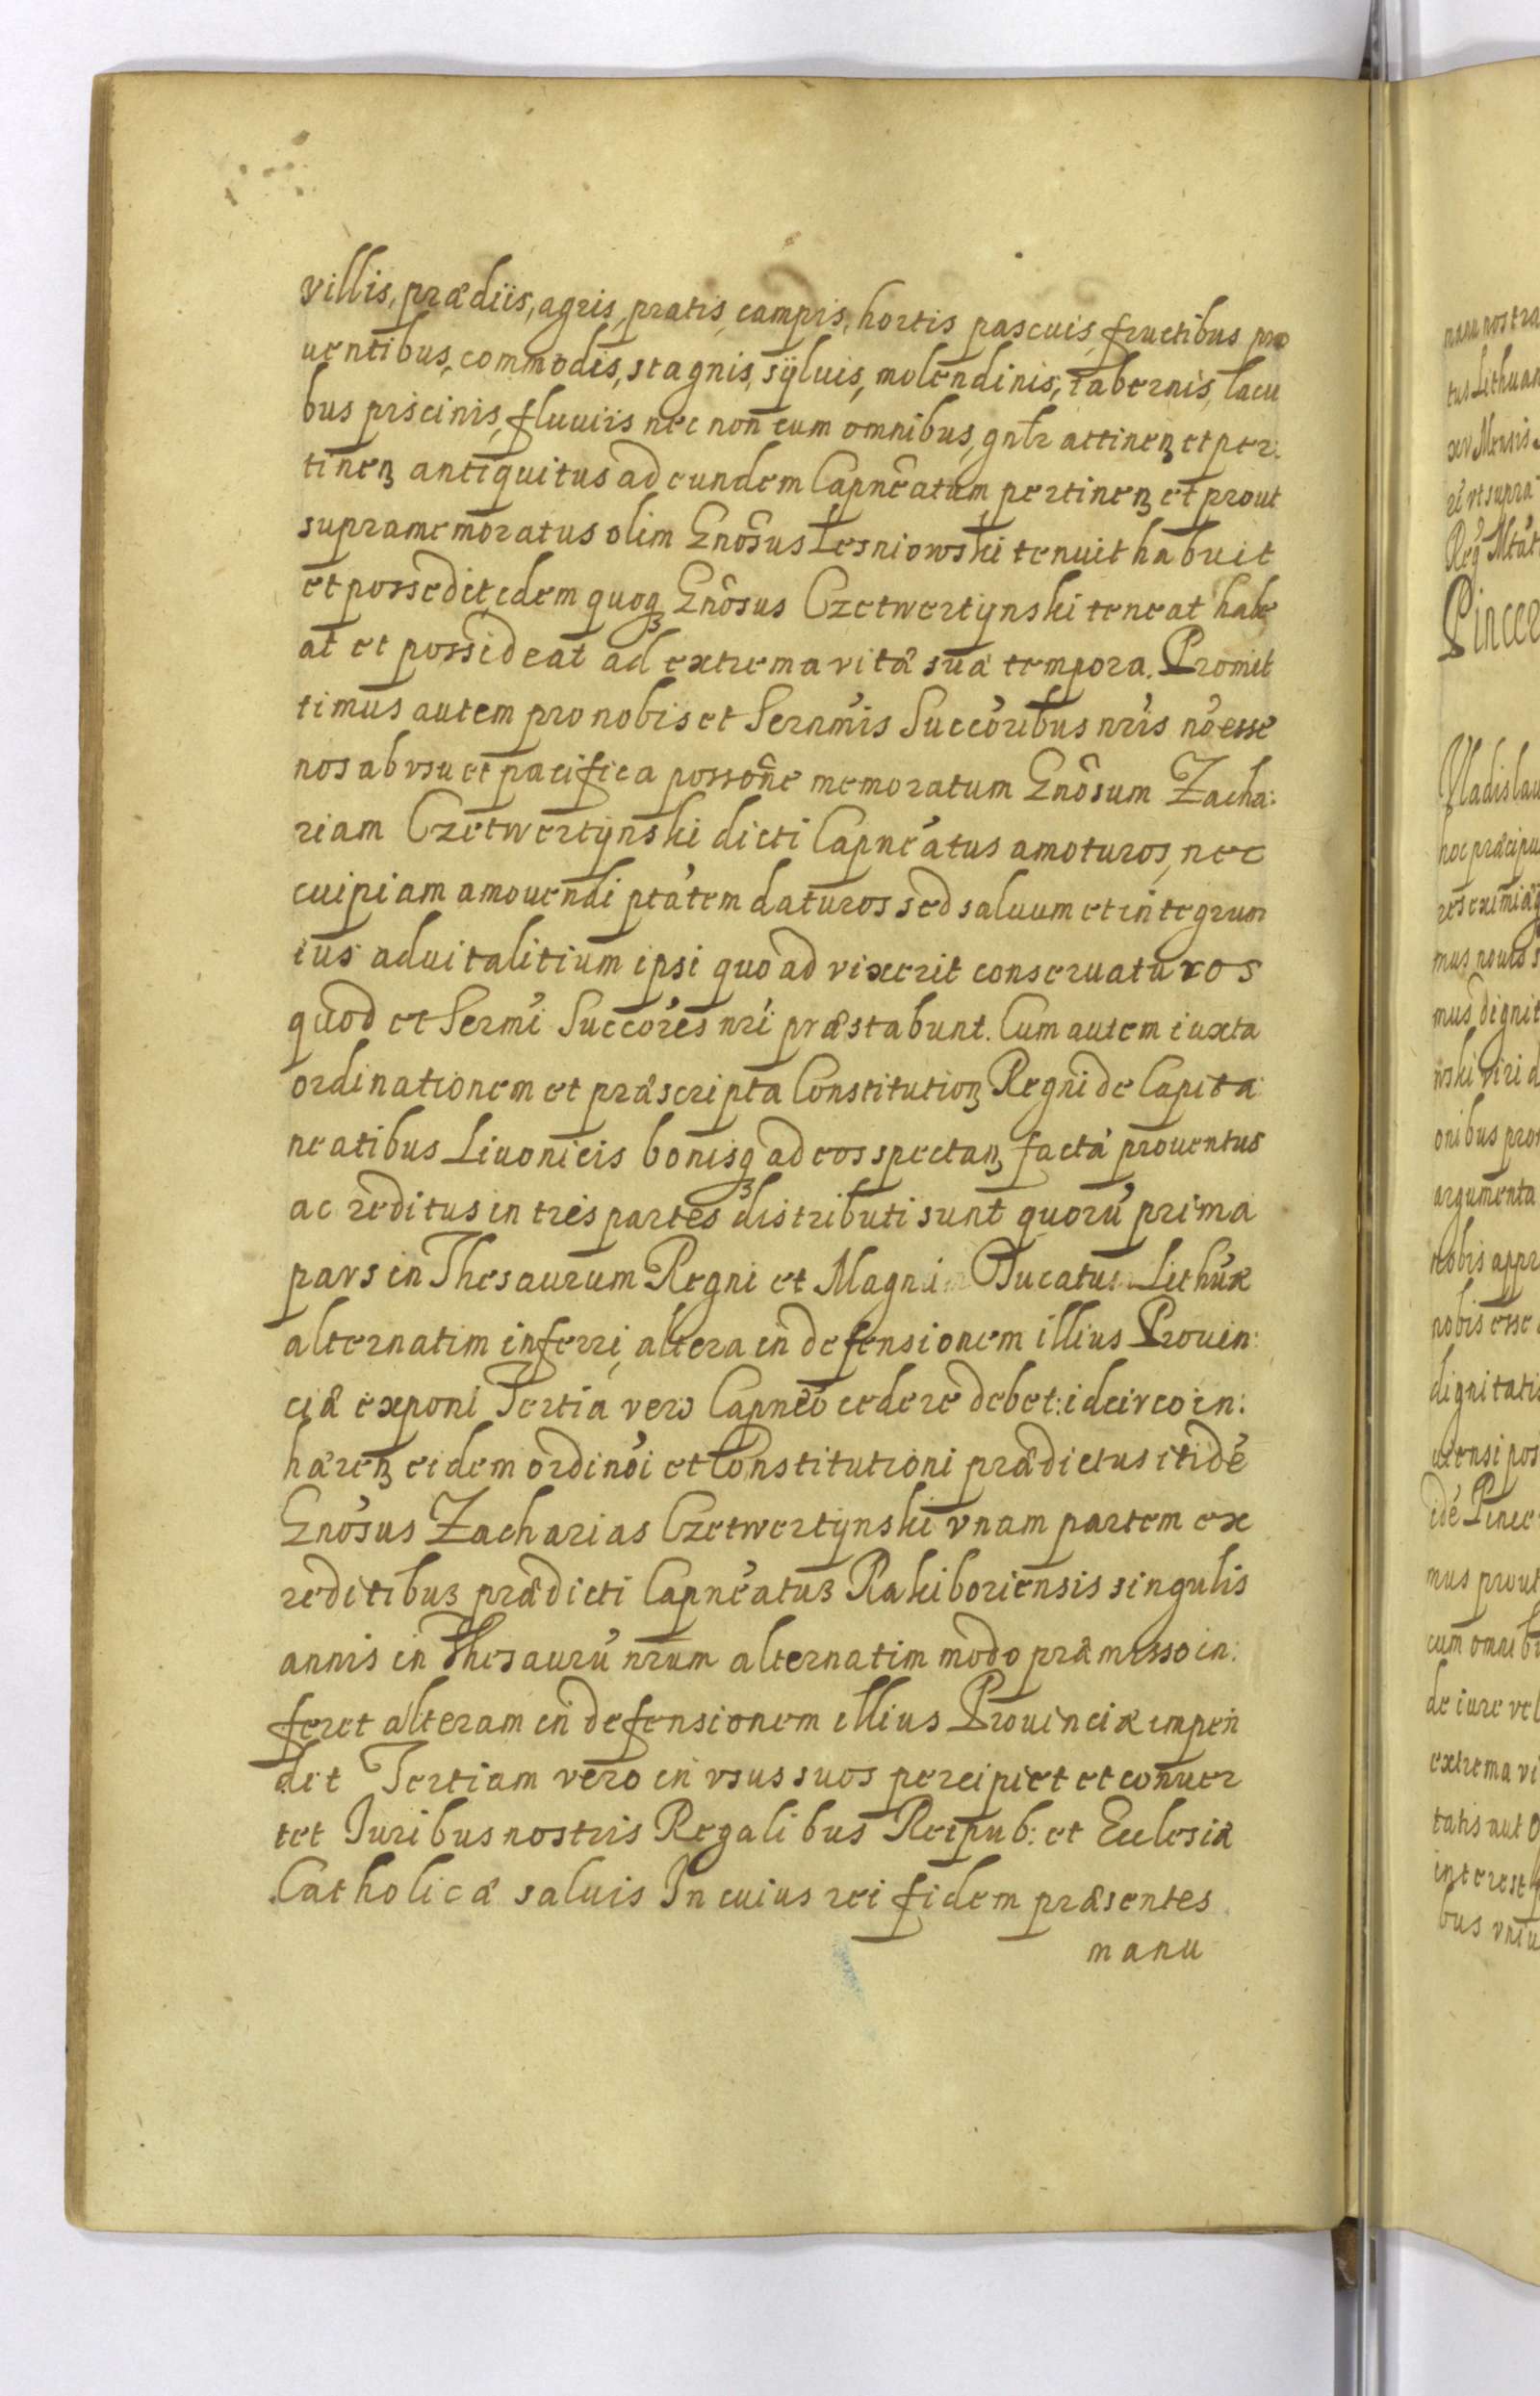 villis, prædiis, agris, pratis, campis, hortis pascuis, fructibus pro
uentibus, commodis, stagnis, sÿluis, molendinis, tabernis, lacu
bus piscinis, fluuiis nec non cum omnibus, gnlr attineꝫ et per:
tineꝫ antiquitus ad eundem Capneatum pertineꝫ et prout
supramemoratus olim Gnosus Lesniowski tenuit habuit
et possedit, idem quoqꝫ Gnosus Czetwertÿnski teneat habe
at et possideat ad extrema vitæ suæ tempora. Promit
timus autem pro nobis et Sernmis Succoribus nris nō esse
nos ab vsu et pacifica possone memoratum Gnosum Zacha:
riam Czetwertÿnski dicti Capneatus amoturos, nec
cuipiam amouendi ptatem daturos sed saluum et integrum
ius aduitalitium ipsi quoad vixerit conseruaturos
quod et Sermi Succores nri præstabunt. Cum autem iuxta
ordinationem et præscripta Constitutioꝫ Regni de Capita
neatibus Liuonicis bonisqꝫ ad eos spectanꝫ facta prouentus
ac reditus in tres partes distributi sunt quorū prima
pars in Thesaurum Regni et Magni Ducatus Lithuæ
alternatim inferri, altera in defensionem illius Prouin:
ciæ exponi Tertia vero Capneo cedere debet: idcirco in:
hæreꝫ eidem ordinoi et Constitutioni prædictus itidē
Gnosus Zacharias Czetwertÿnski vnam partem ex
reditibus prædicti Capneatus Rakiboriensis singulis
annis in Thesaurū nrum alternatim modo præmisso in:
feret alteram in defensionem illius Prouinciæ impen
det Tertiam vero in vsus suos percipiet et conuer
tet Iuribus nostris Regalibus Reipub: et Ecclesiæ
Catholicæ saluis In cuius rei fidem præsentes
manu
nanu nostra
tus Lithuan
xv Mensis
ré vt supra
Reg Mtat
Pincer
Vladislau
hoc præcipu
mus dignit
onibus pro
argumenta
nobis appr
nobis esse
dignitatis
mus prout
cum omnib
de iure vel
extrema vi
tatis aut
interest
bus vniu